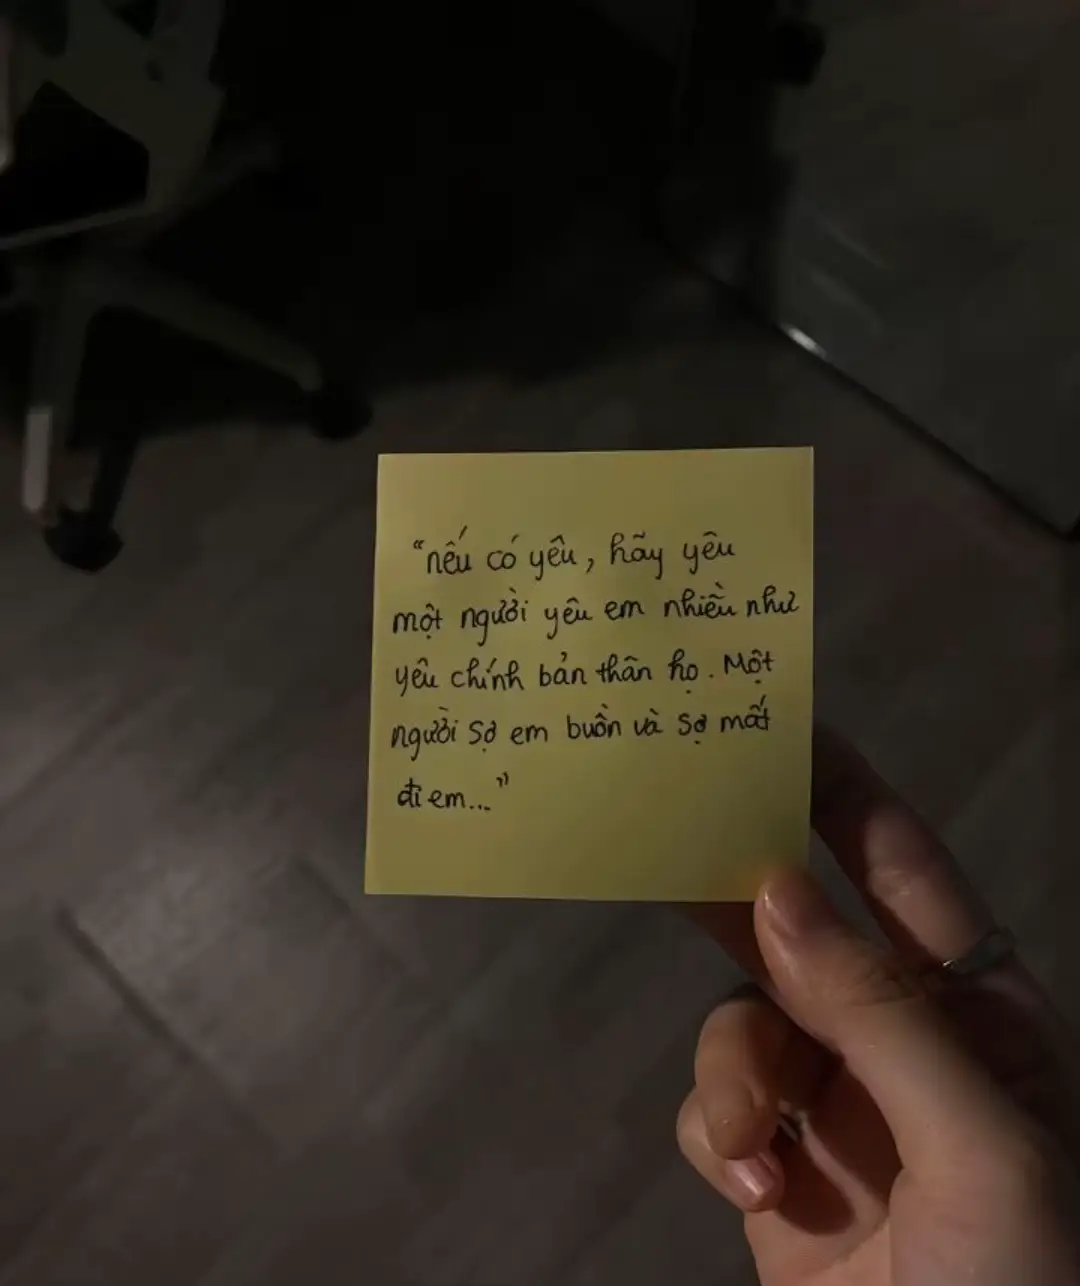 “nếu có yêu, hãy yêu
một người yêu em nhiều như
yêu chính bản thân họ. Một
người sợ em buồn và sợ mất
đi em...”